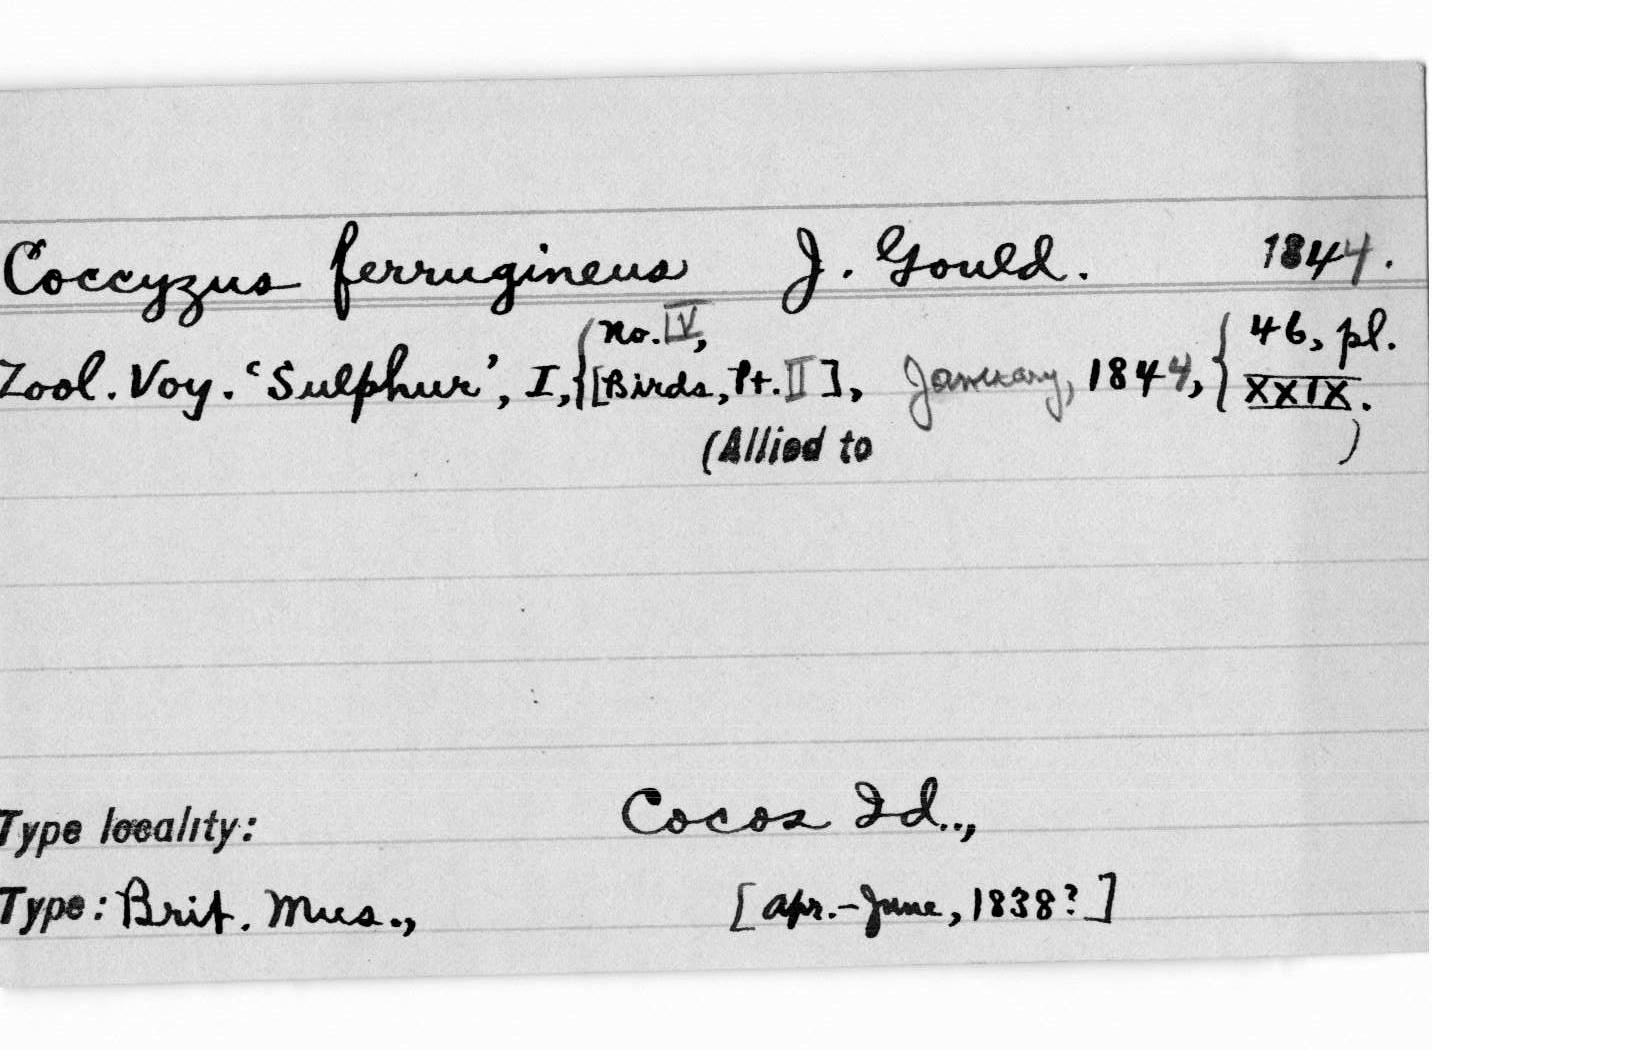 Coccyzus ferrugineus J. Gould. 1844.
no. IV, 46, pl.
Zool. Voy. 'Sulphur', I, [Birds, Pt. II], January, 1844, XXIX.
(Allied to )
Type locality: Cocos Id..,
Type: Brit. Mus., [Apr.-June, 1838?]